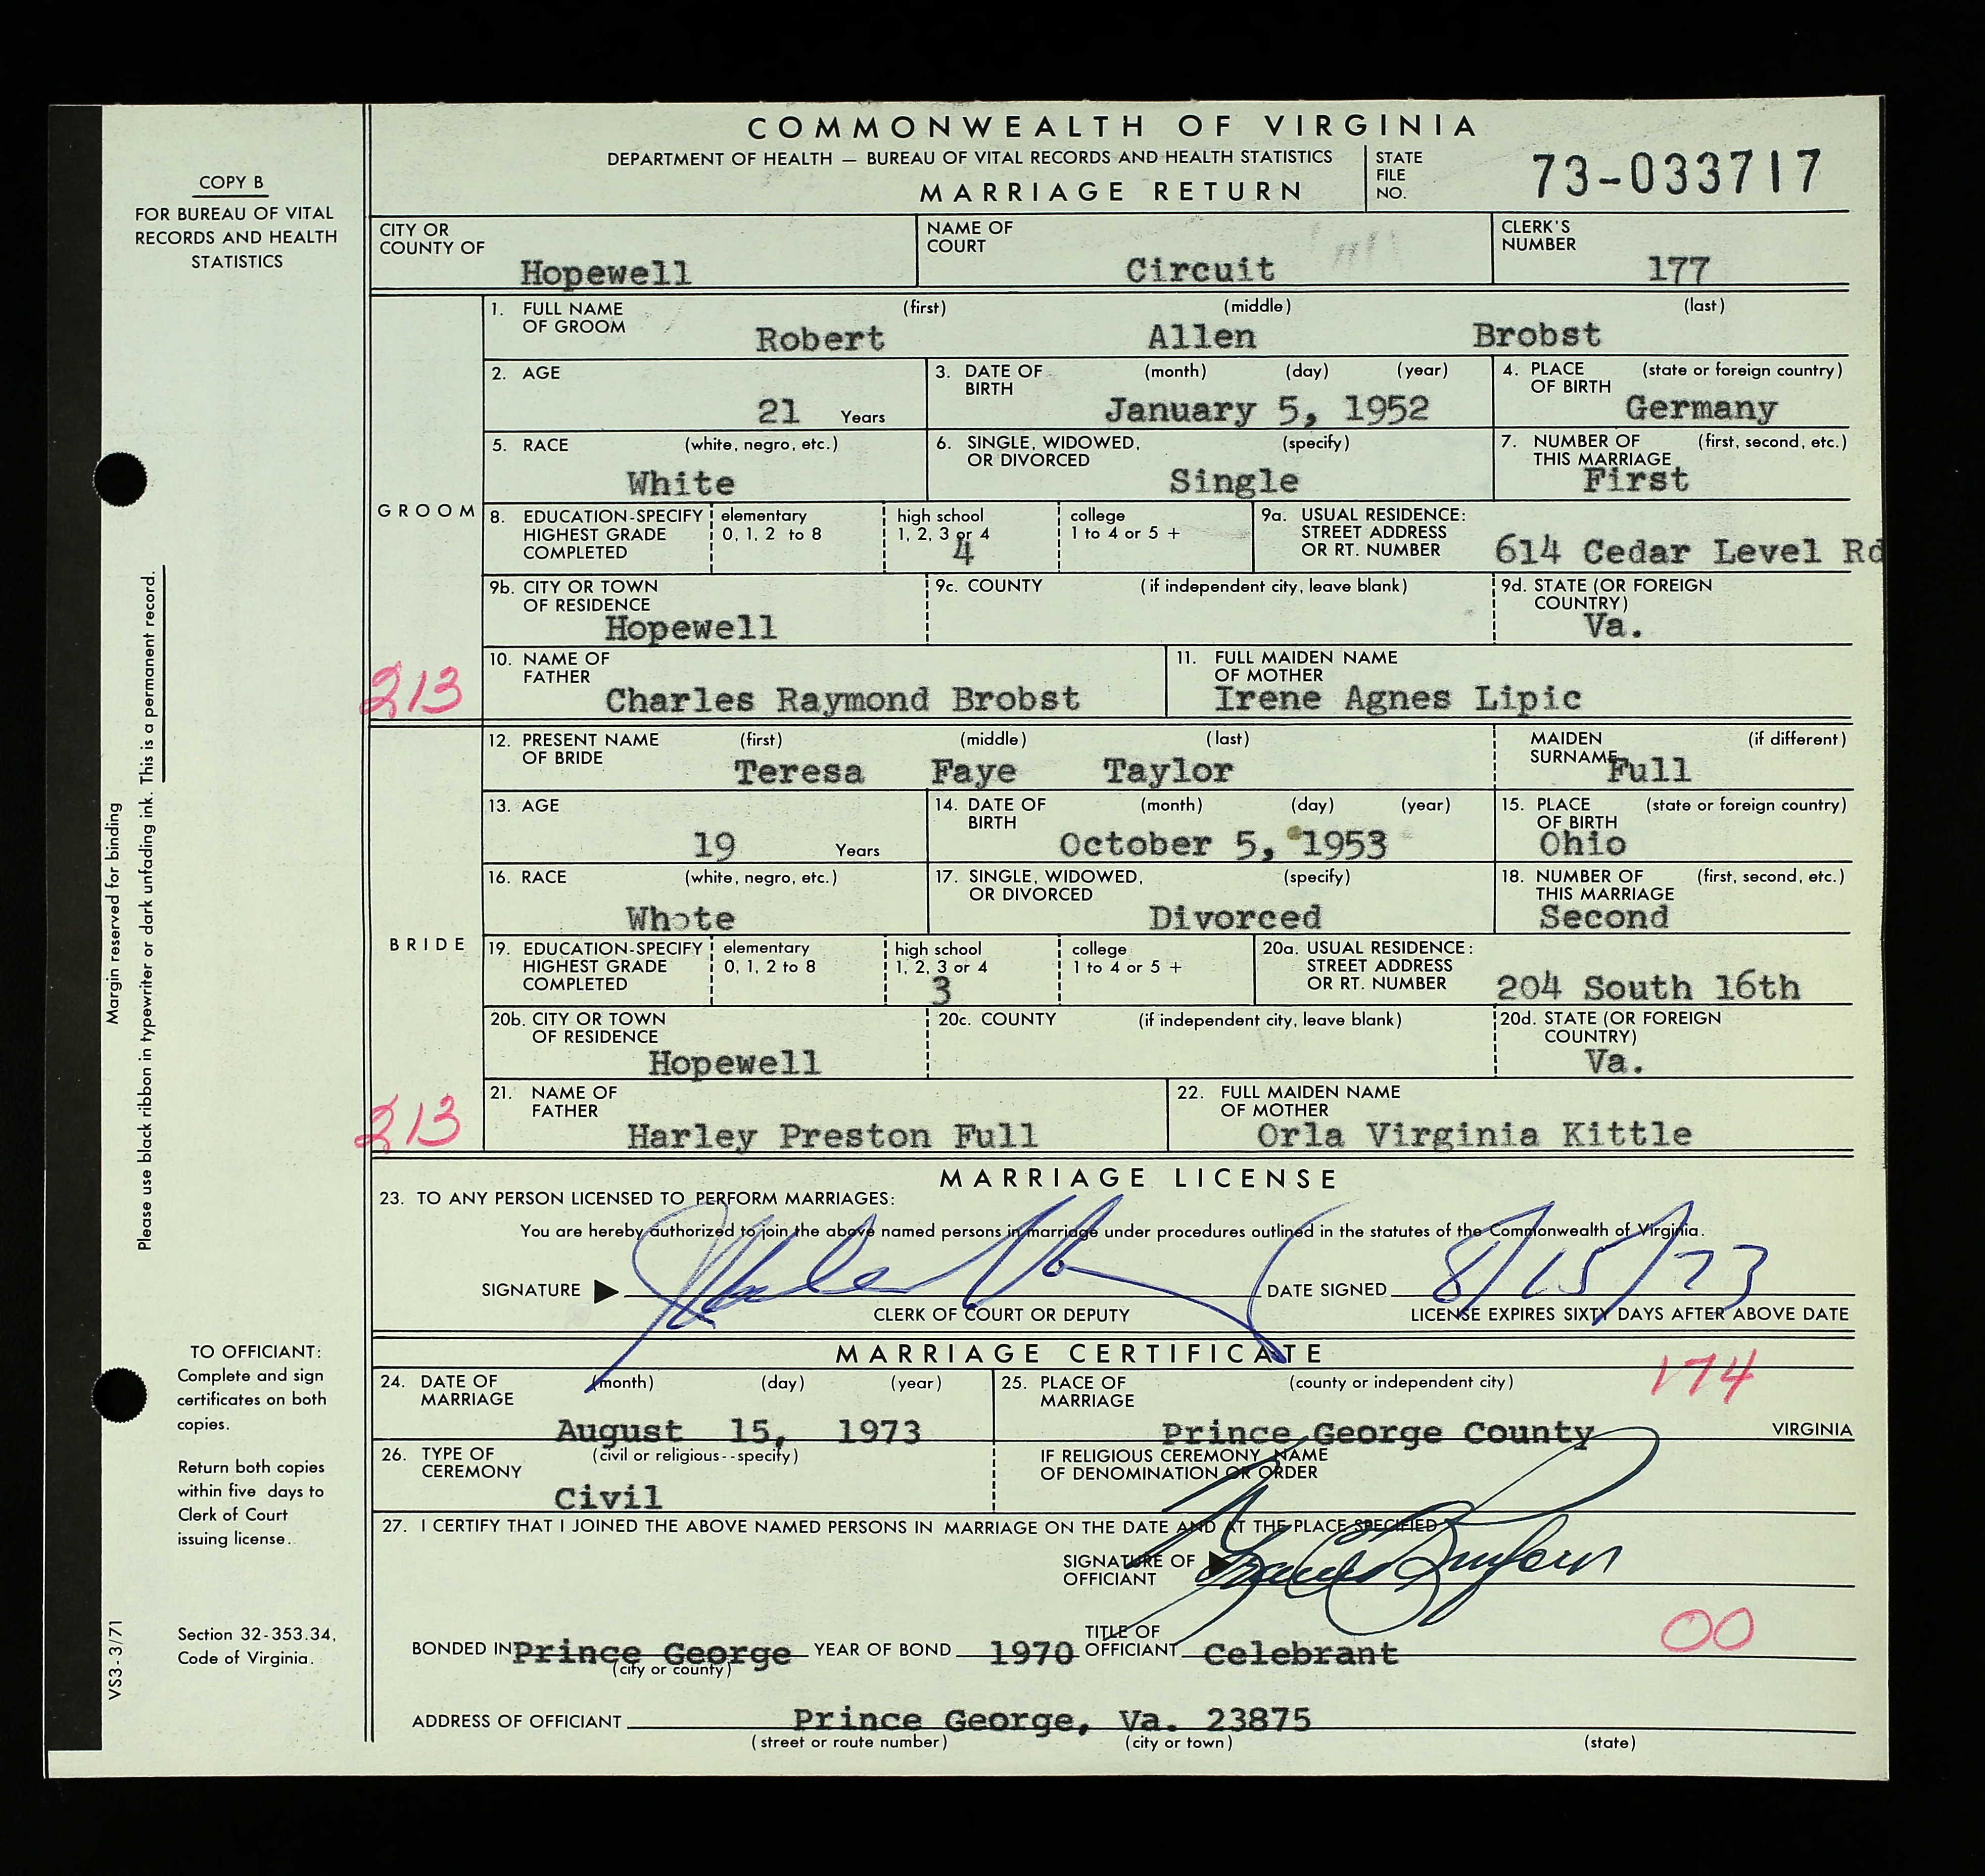 COMMONWEALTH OF VIRGINIA
DEPARTMENT OF HEALTH — BUREAU OF VITAL RECORDS AND HEALTH STATISTICS
MARRIAGE RETURN
STATE FILE NO. 73-033717
COPY B
FOR BUREAU OF VITAL
RECORDS AND HEALTH
STATISTICS
CITY OR COUNTY OF Hopewell
NAME OF COURT Circuit
CLERK'S NUMBER 177
GROOM
1. FULL NAME OF GROOM (first) (middle) (last)
Robert Allen Brobst
2. AGE 21 Years
3. DATE OF BIRTH (month) (day) (year) January 5, 1952
4. PLACE OF BIRTH (state or foreign country) Germany
5. RACE (white, negro, etc.) White
6. SINGLE, WIDOWED, OR DIVORCED (specify) Single
7. NUMBER OF THIS MARRIAGE (first, second, etc.) First
8. EDUCATION-SPECIFY HIGHEST GRADE COMPLETED elementary 0, 1, 2 to 8 high school 1, 2, 3 or 4 4 college 1 to 4 or 5 +
9a. USUAL RESIDENCE: STREET ADDRESS OR RT. NUMBER 614 Cedar Level Rd
9b. CITY OR TOWN OF RESIDENCE Hopewell
9c. COUNTY (if independent city, leave blank)
9d. STATE (OR FOREIGN COUNTRY) Va.
213
10. NAME OF FATHER Charles Raymond Brobst
11. FULL MAIDEN NAME OF MOTHER Irene Agnes Lipic
BRIDE
12. PRESENT NAME OF BRIDE (first) (middle) (last)
Teresa Faye Taylor
MAIDEN SURNAME (if different) Full
13. AGE 19 Years
14. DATE OF BIRTH (month) (day) (year) October 5, 1953
15. PLACE OF BIRTH (state or foreign country) Ohio
16. RACE (white, negro, etc.) Whote
17. SINGLE, WIDOWED, OR DIVORCED (specify) Divorced
18. NUMBER OF THIS MARRIAGE (first, second, etc.) Second
19. EDUCATION-SPECIFY HIGHEST GRADE COMPLETED elementary 0, 1, 2 to 8 high school 1, 2, 3 or 4 3 college 1 to 4 or 5 +
20a. USUAL RESIDENCE: STREET ADDRESS OR RT. NUMBER 204 South 16th
20b. CITY OR TOWN OF RESIDENCE Hopewell
20c. COUNTY (if independent city, leave blank)
20d. STATE (OR FOREIGN COUNTRY) Va.
213
21. NAME OF FATHER Harley Preston Full
22. FULL MAIDEN NAME OF MOTHER Orla Virginia Kittle
MARRIAGE LICENSE
23. TO ANY PERSON LICENSED TO PERFORM MARRIAGES:
You are hereby authorized to join the above named persons in marriage under procedures outlined in the statutes of the Commonwealth of Virginia.
SIGNATURE
DATE SIGNED 8/15/73
CLERK OF COURT OR DEPUTY
LICENSE EXPIRES SIXTY DAYS AFTER ABOVE DATE
MARRIAGE CERTIFICATE
174
24. DATE OF MARRIAGE (month) (day) (year) August 15, 1973
25. PLACE OF MARRIAGE (county or independent city) Prince George County VIRGINIA
26. TYPE OF CEREMONY (civil or religious--specify) Civil
IF RELIGIOUS CEREMONY, NAME OF DENOMINATION OR ORDER
27. I CERTIFY THAT I JOINED THE ABOVE NAMED PERSONS IN MARRIAGE ON THE DATE AND AT THE PLACE SPECIFIED
SIGNATURE OF OFFICIANT
00
BONDED IN Prince George (city or county) YEAR OF BOND 1970 TITLE OF OFFICIANT Celebrant
ADDRESS OF OFFICIANT Prince George, Va. 23875
(street or route number) (city or town) (state)
Margin reserved for binding
Please use black ribbon in typewriter or dark unfading ink. This is a permanent record.
TO OFFICIANT:
Complete and sign
certificates on both
copies.
Return both copies
within five days to
Clerk of Court
issuing license.
Section 32-353.34,
Code of Virginia.
VS3-3/71